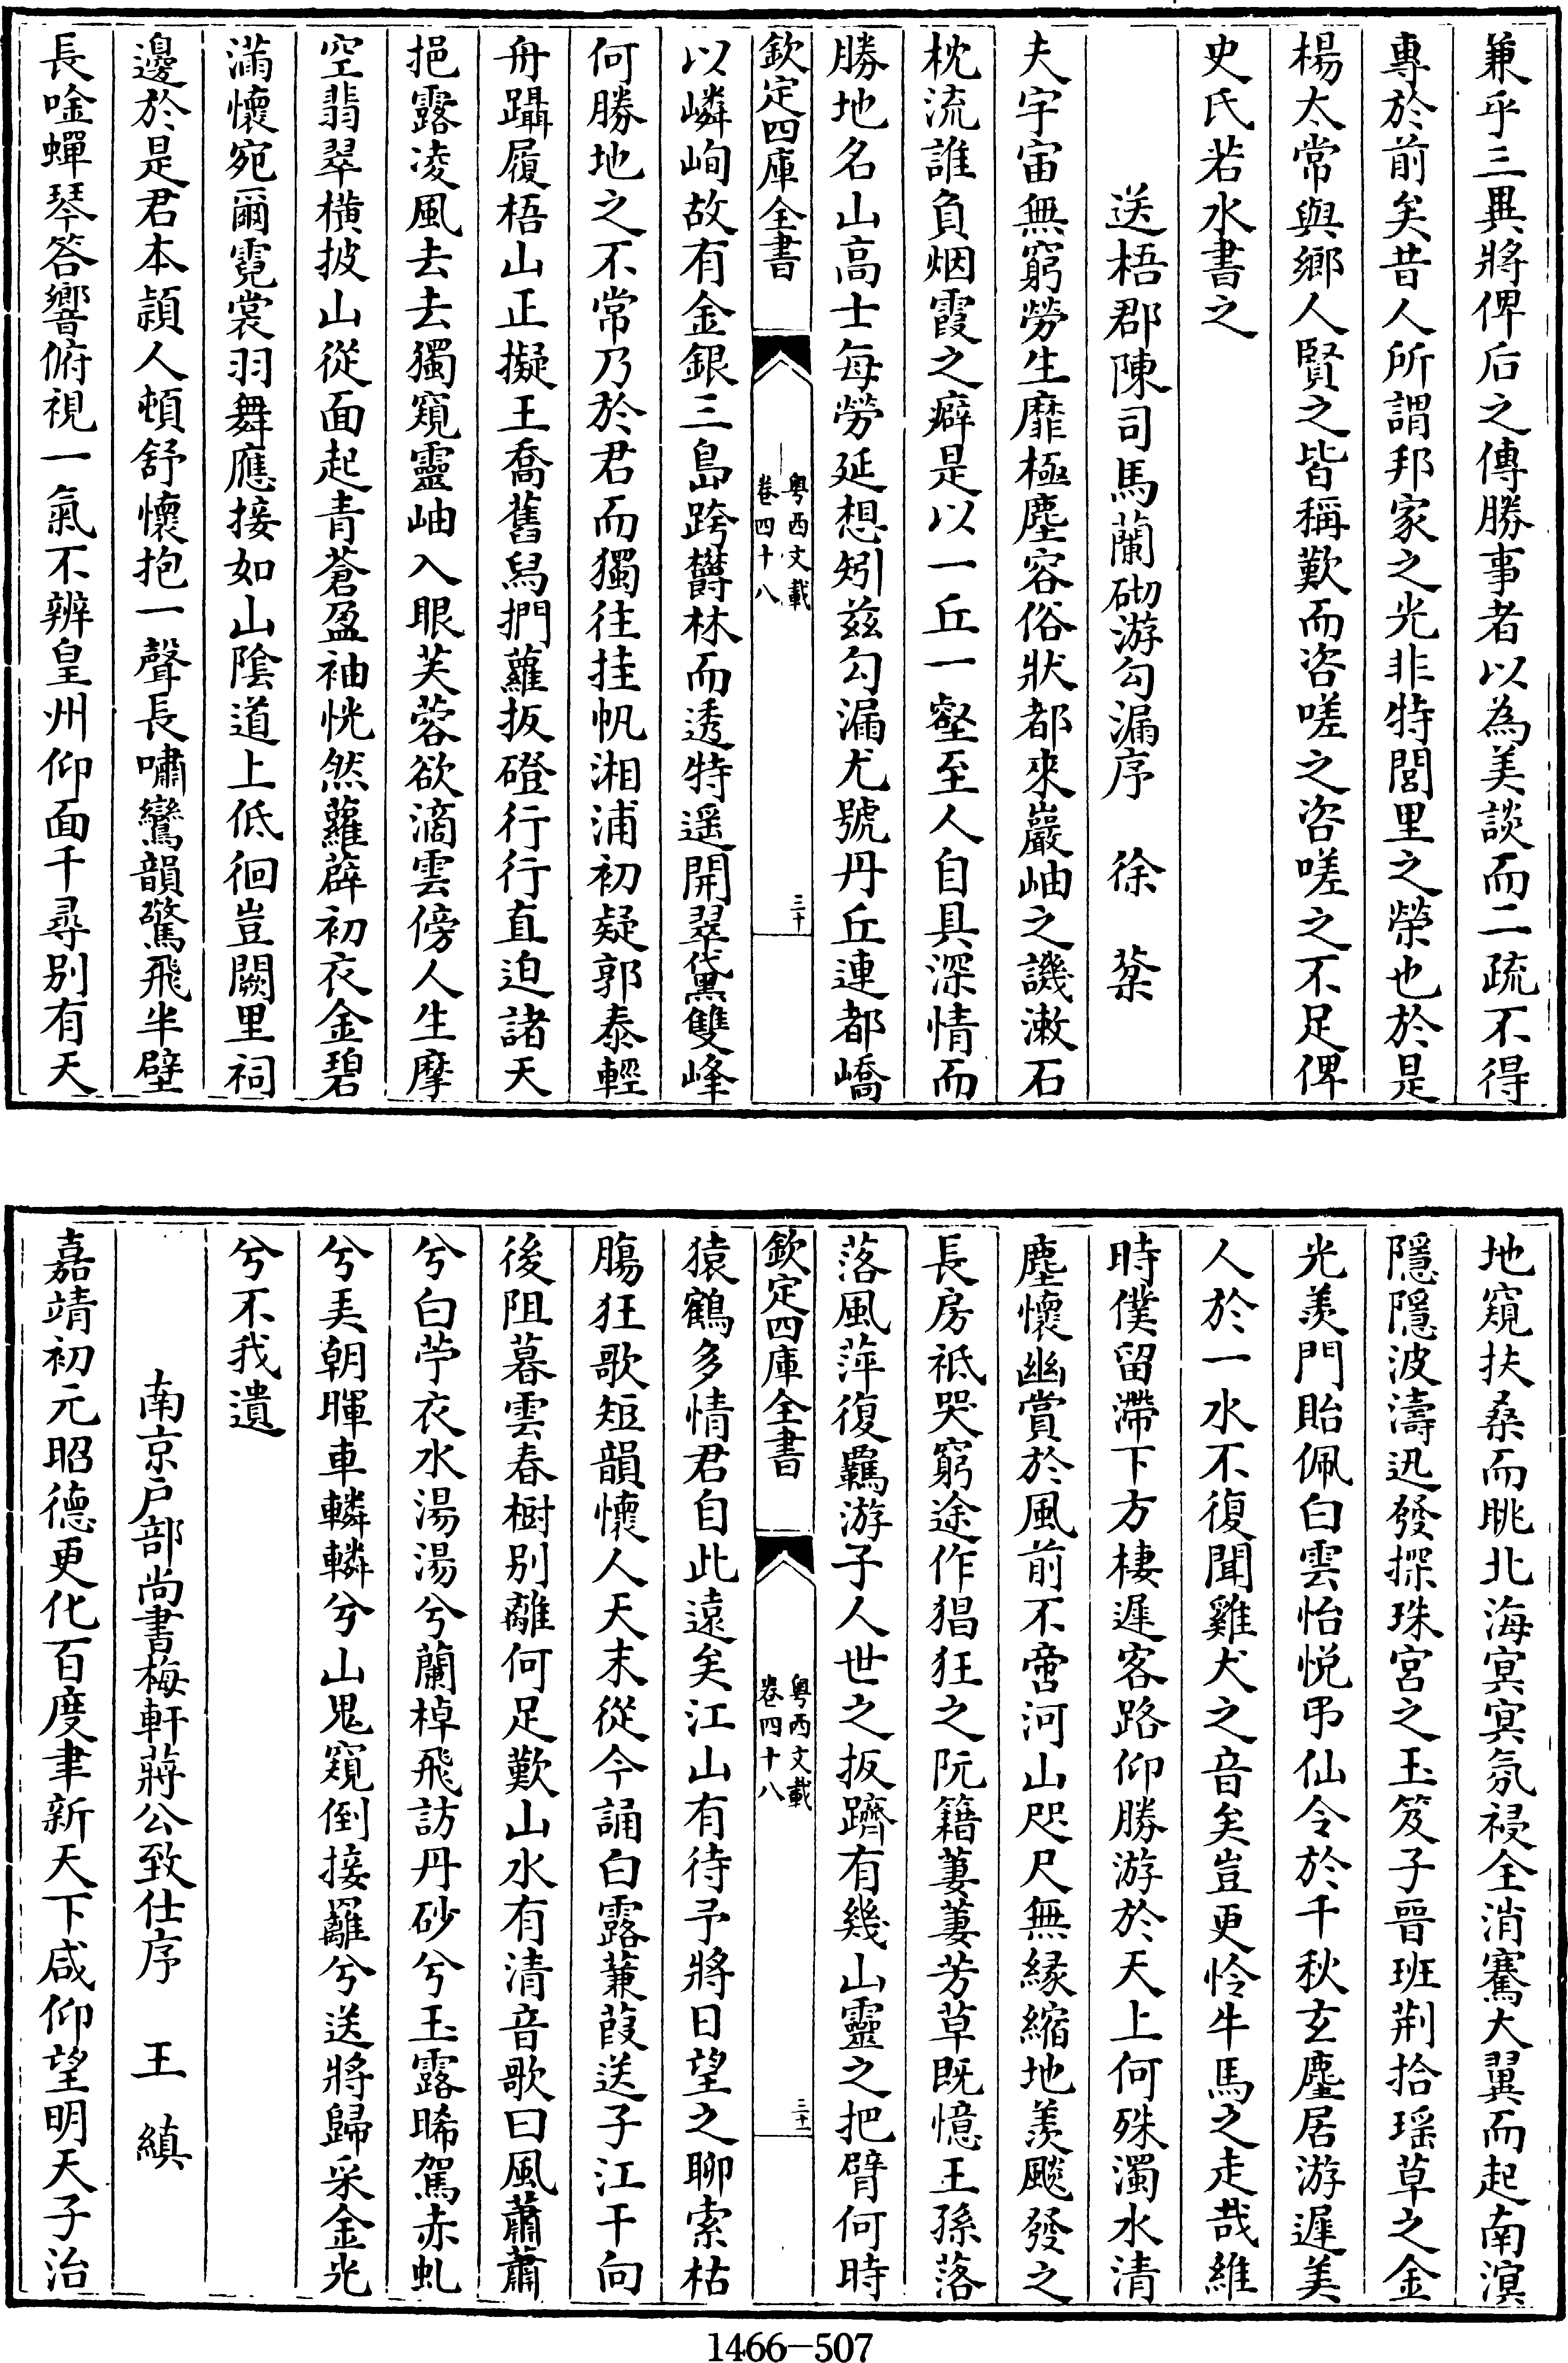 兼乎三異將俾后之傳勝事者以為美談而二疏不得
專於前矣昔人所謂邦家之光非特閭里之榮也於是
楊太常與鄉人賢之皆稱歎而咨嗟之咨嗟之不足俾
史氏若水書之
送梧郡陳司馬蘭砌游勾漏序　徐　棻
夫宇宙無窮勞生靡極塵容俗狀都來巖岫之譏漱石
枕流誰負烟霞之癖是以一丘一壑至人自具深情而
勝地名山高士每勞延想矧兹勾漏尤號丹丘連都嶠
欽定四庫全書
粵西文載
卷四十八
三十
以嶙峋故有金銀三島跨欝林而透特遥開翠黛雙峰
何勝地之不常乃於君而獨往挂帆湘浦初疑郭泰輕
舟躡履梧山正擬王喬舊舄捫蘿扳磴行行直迫諸天
挹露凌風去去獨窺靈岫入眼芙蓉欲滴雲傍人生摩
空翡翠横披山從面起青蒼盈袖恍然蘿薜初衣金碧
滿懷宛爾霓裳羽舞應接如山陰道上低徊豈闕里祠
邊於是君本頴人頓舒懷抱一聲長嘯鸞韻驚飛半壁
長唫蟬琴答響俯視一氣不辨皇州仰面千尋别有天
地窺扶桑而眺北海㝠㝠氛祲全消騫大翼而起南溟
隱隱波濤迅發探珠宮之玉笈子晉班荆拾瑶草之金
光羨門貽佩白雲怡悦弔仙令於千秋玄塵居游遲美
人於一水不復聞雞犬之音矣豈更怜牛馬之走哉維
時僕留滯下方棲遲客路仰勝游於天上何殊濁水清
塵懷幽賞於風前不啻河山咫尺無緣縮地羨颷發之
長房祗哭窮途作猖狂之阮籍萋萋芳草既憶王孫落
落風萍復羈游子人世之扳躋有幾山靈之把臂何時
欽定四庫全書
粵西文載
卷四十八
三十一
猿鶴多情君自此遠矣江山有待予將日望之聊索枯
腸狂歌短韻懷人天末從今誦白露蒹葭送子江干向
後阻暮雲春樹别離何足歎山水有清音歌曰風蕭蕭
兮白苧衣水湯湯兮蘭棹飛訪丹砂兮玉露晞駕赤虬
兮美朝暉車轔轔兮山鬼窺倒接䍦兮送將歸采金光
兮不我遺
南京户部尚書梅軒蔣公致仕序　王　縝
嘉靖初元昭德更化百度聿新天下咸仰望明天子治
1466-507